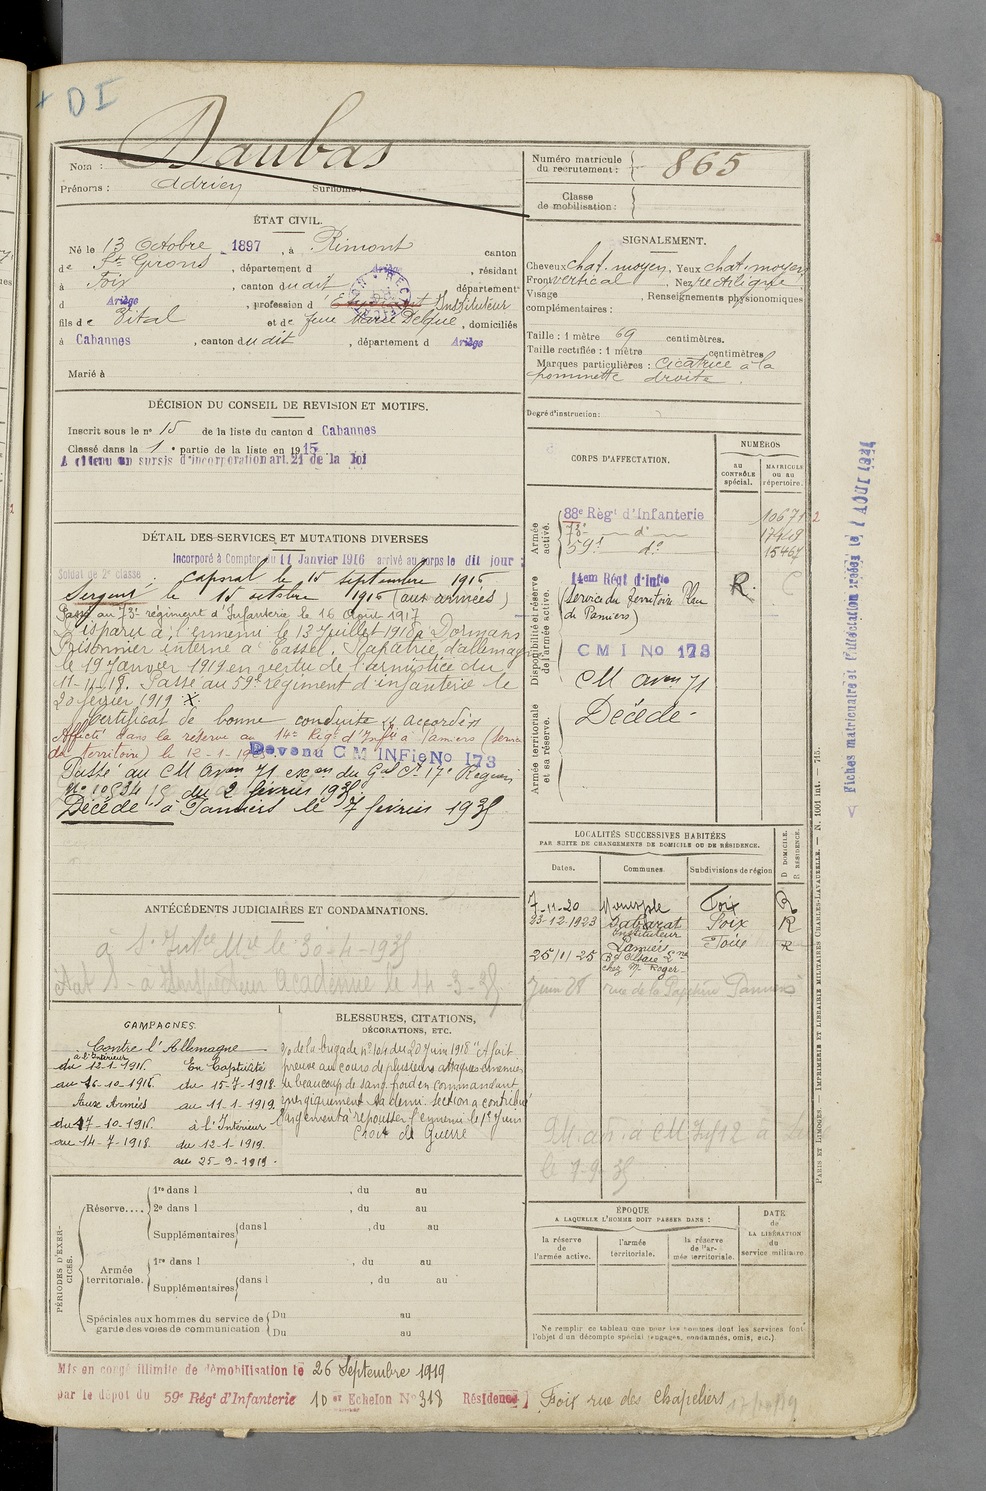 + DI
Daubas
Nom :
Prénoms : Adrien Surnoms :
Numéro matricule du recrutement : 865
Classe de mobilisation :
ÉTAT CIVIL.
Né le 13 Octobre 1897, à Rimont canton
de St Girons, département d Ariège, résidant
à Foix, canton du dit département
d Ariège, profession d' Etudiant Instituteur
fils de Vital et de feue Marie Delque, domiciliés
à Cabannes, canton du dit, département d Ariège
Marié à
SIGNALEMENT.
Cheveux chat. moyen, Yeux chat. moyen
Front vertical Nez rectiligne
Visage , Renseignements physionomiques
complémentaires :
Taille : 1 mètre 69 centimètres.
Taille rectifiée : 1 mètre centimètres
Marques particulières : Cicatrice à la
pommette droite.
Degré d'instruction :
DÉCISION DU CONSEIL DE REVISION ET MOTIFS.
Inscrit sous le n° 15 de la liste du canton d Cabannes
Classé dans la 1e partie de la liste en 1915
A obtenu un sursis d'incorporation art. 21 de la loi
DÉTAIL DES SERVICES ET MUTATIONS DIVERSES
Incorporé à Compter du 11 Janvier 1916 arrivé au corps le dit jour :
Soldat de 2e classe : caporal le 15 septembre 1916
Sergent le 15 octobre 1916 (aux armées)
Passé au 73e régiment d'Infanterie le 16 Août 1917
Disparu à l'ennemi le 13 Juillet 1918 à Dormans
Prisonnier interné à Cassel. Rapatrié d'allemagne
le 19 Janvier 1919 en vertu de l'armistice du
11-11-18. Passé au 59e régiment d'infanterie le
20 février 1919 X.
Certificat de bonne conduite accordé
Affecté dans la réserve au 14e Régt d'Inf à Pamiers (Service
du Territoire) le 12-1-
Devenu C M INFie No 173
Passé au CM Aven 71 du Gal Ct 17e Région
du 2 février 1935.
Décédé à Pamiers le 7 février 1935
CORPS D'AFFECTATION.
NUMÉROS
au CONTRÔLE spécial.
MATRICULE ou au répertoire.
Armée active.
88e Régt d'Infanterie 10671 2
73e do 17448
59e do
Disponibilité et réserve de l'armée active.
14em Régt d'Infie R.
(Service du Territoire Place
de Pamiers)
C M I No 173
CM Aven 71
Armée territoriale et sa réserve.
Décédé
LOCALITÉS SUCCESSIVES HABITÉES
PAR SUITE DE CHANGEMENTS DE DOMICILE OU DE RÉSIDENCE.
Dates. Communes. Subdivisions de région
D DOMICILE. R RÉSIDENCE.
7-11-20 Foix R
23-12-1923 Foix R
Instituteur
25/11/25 Pamiers Foix R
chez Mr Roger
Juin 28 rue de la Pamiers
ANTÉCÉDENTS JUDICIAIRES ET CONDAMNATIONS.
le 30-4-1935
Académie le 14-3-35
CAMPAGNES.
Contre l'Allemagne
à l'Intérieur
du 12-1-1916.
au 16-10-1916.
Aux Armées
du 17-10-1916
au 14-7-1918
En Captivité
du 15-7-1918.
au 11-1-1919.
à l'Intérieur
du 12-1-1919.
au 25-9-1919.
BLESSURES, CITATIONS,
DÉCORATIONS, ETC.
de la brigade n° 104 du 20 Juin 1918 "A fait
preuve au cours de plusieurs attaques ennemies
de beaucoup de sang froid en commandant
énergiquement sa demi-section a contribué
largement à repousser l'ennemi le 1er Juin
Croix de Guerre
le 7-9-35
PÉRIODES D'EXERCICES.
Réserve....
1re dans l , du au
2e dans l , du au
Supplémentaires dans l , du au
Armée territoriale.
1re dans l , du au
Supplémentaires dans l , du au
Spéciales aux hommes du service de
garde des voies de communication
Du au
Du au
ÉPOQUE
A LAQUELLE L'HOMME DOIT PASSER DANS :
la réserve de l'armée active.
l'armée territoriale.
la réserve de l'armée territoriale.
DATE de LA LIBÉRATION du service militaire
Ne remplir ce tableau que pour les hommes dont les services font
l'objet d'un décompte spécial (engagés, condamnés, omis, etc.)
Mis en congé illimité de démobilisation le 26 Septembre 1919
par le dépôt du 59e Régt d'Infanterie 10 er Echelon No 318 Résidence Foix rue des Chapeliers
PARIS ET LIMOGES. — IMPRIMERIE ET LIBRAIRIE MILITAIRES CHARLES-LAVAUZELLE. — N. 1001 int. — 715.